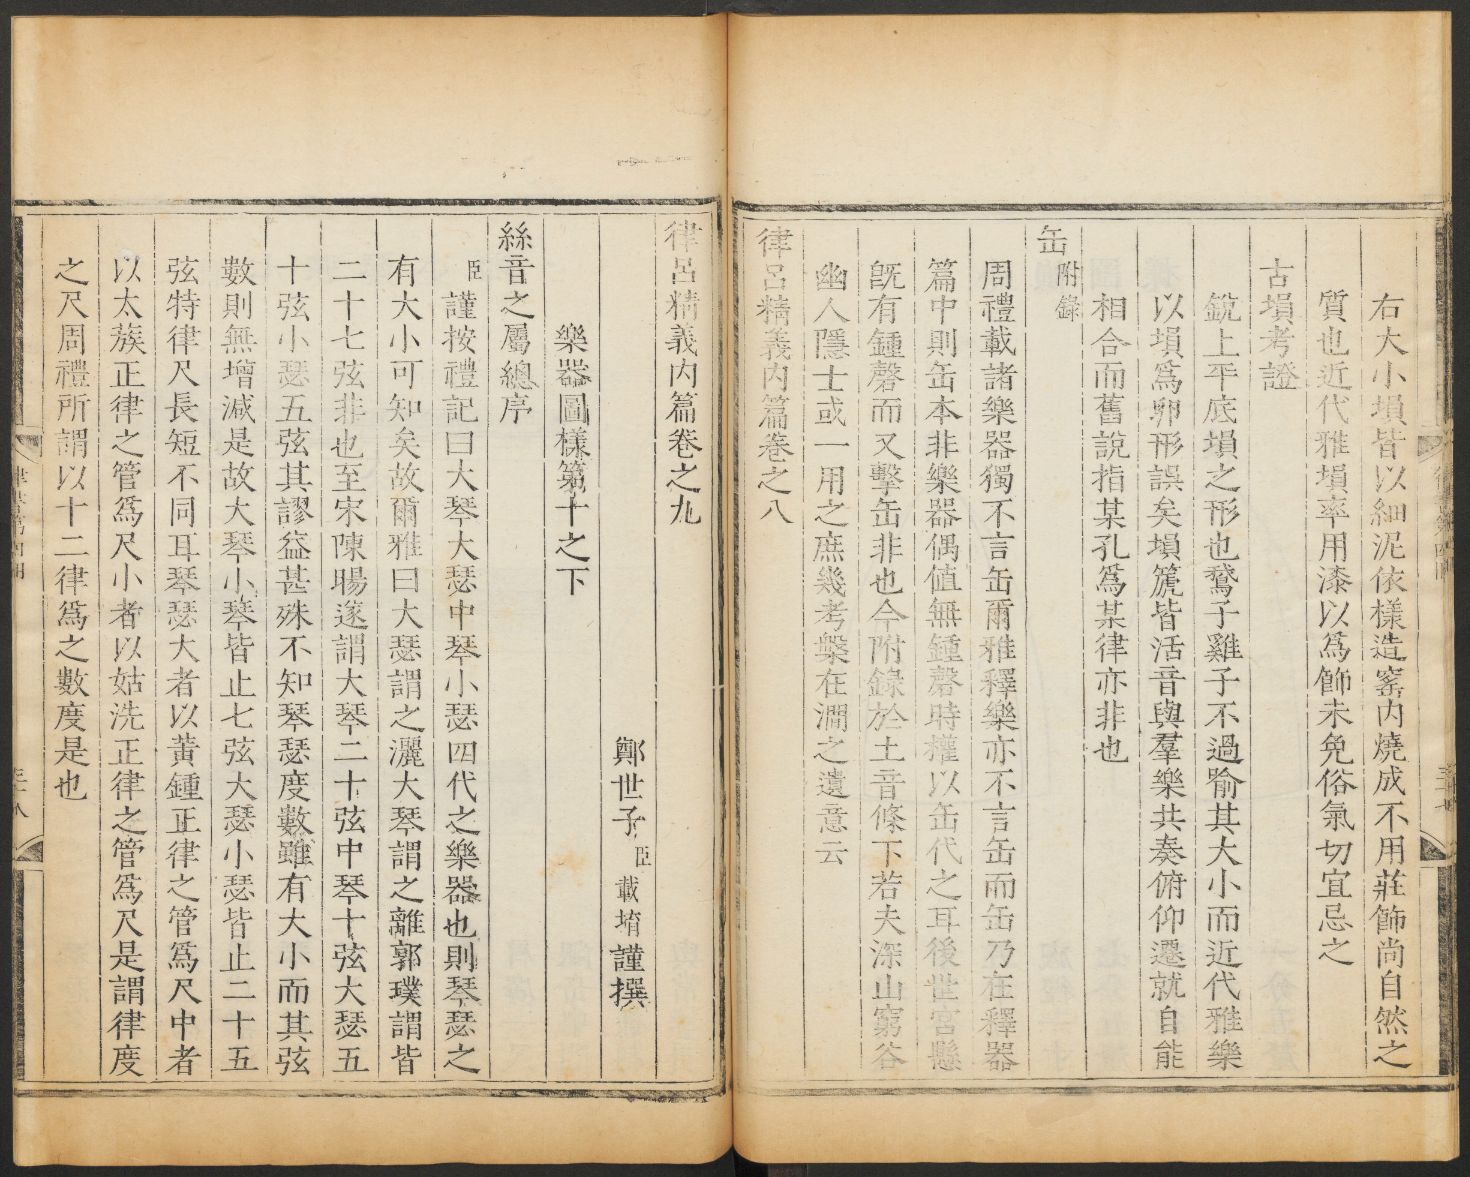 右大小塤皆以細泥依樣造窰內燒成不用莊飾尚自然之
質也近代雅塤率用漆以爲飾未免俗氣切宜忌之
古塤考證
銳上平底塤之形也鵞子雞子不過踰其大小而近代雅樂
以塤爲卵形誤矣塤箎皆活音與羣樂共奏俯仰遷就自能
相合而舊說指某孔爲某律亦非也
缶附錄
周禮載諸樂器獨不言缶爾雅釋樂亦不言缶而缶乃在釋器
篇中則缶本非樂器偶値無鍾磬時權以缶代之耳後世宮懸
旣有鍾磬而又擊缶非也今附錄於土音條下若夫深山窮谷
幽人隱士或一用之庶幾考槃在澗之遺意云
律呂精義內篇卷之八
律呂精義內篇卷之九
鄭世子臣載堉謹撰
樂器圖樣第十之下
絲音之屬總序
臣謹按禮記曰大琴大瑟中琴小瑟四代之樂器也則琴瑟之
有大小可知矣故爾雅曰大瑟謂之灑大琴謂之離郭璞謂皆
二十七弦非也至宋陳暘遂謂大琴二十弦中琴十弦大瑟五
十弦小瑟五弦其謬益甚殊不知琴瑟度數雖有大小而其弦
數則無增減是故大琴小琴皆止七弦大瑟小瑟皆止二十五
弦特律尺長短不同耳琴瑟大者以黃鍾正律之管爲尺中者
以太蔟正律之管爲尺小者以姑洗正律之管爲尺是謂律度
之尺周禮所謂以十二律爲之數度是也